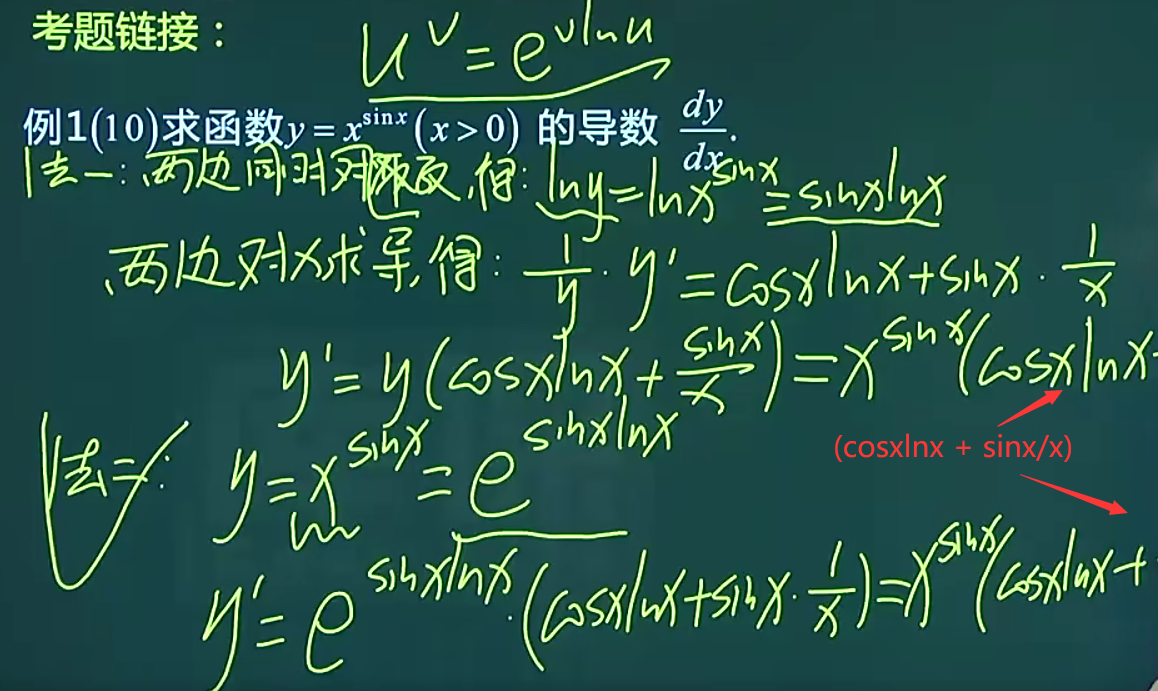 考题链接：
u^v = e^{v ln u}
例1(10)求函数y = x^{sin x} (x > 0) 的导数 dy/dx.
法一：两边同时对取，得：ln y = ln x^{sin x} = sin x ln x
两边对x求导，得：1/y · y' = cos x ln x + sin x · 1/x
y' = y(cos x ln x + sin x/x) = x^{sin x}(cos x ln x
(cosxlnx + sinx/x)
法二：y = x^{sin x} = e^{sin x ln x}
y' = e^{sin x ln x} · (cos x ln x + sin x · 1/x) = x^{sin x}(cos x ln x +